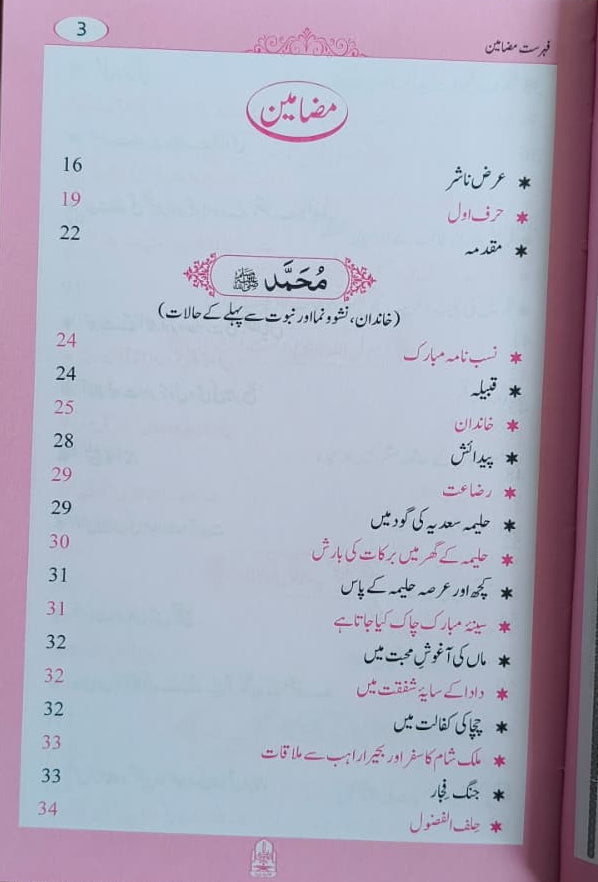 فہرست مضامین 3
مضامین
✶ عرض ناشر 16
✶ حرف اول 19
✶ مقدمہ 22
مُحَمَّد ﷺ
(خاندان، نشوونما اور نبوت سے پہلے کے حالات)
✶ نسب نامہ مبارک 24
✶ قبیلہ 24
✶ خاندان 25
✶ پیدائش 28
✶ رضاعت 29
✶ حلیمہ سعدیہ کی گود میں 29
✶ حلیمہ کے گھر میں برکات کی بارش 30
✶ کچھ اور عرصہ حلیمہ کے پاس 31
✶ سینۂ مبارک چاک کیا جاتا ہے 31
✶ ماں کی آغوشِ محبت میں 32
✶ دادا کے سایۂ شفقت میں 32
✶ چچا کی کفالت میں 32
✶ ملک شام کا سفر اور بحیرا راہب سے ملاقات 33
✶ جنگ فِجار 33
✶ حِلف الفضول 34